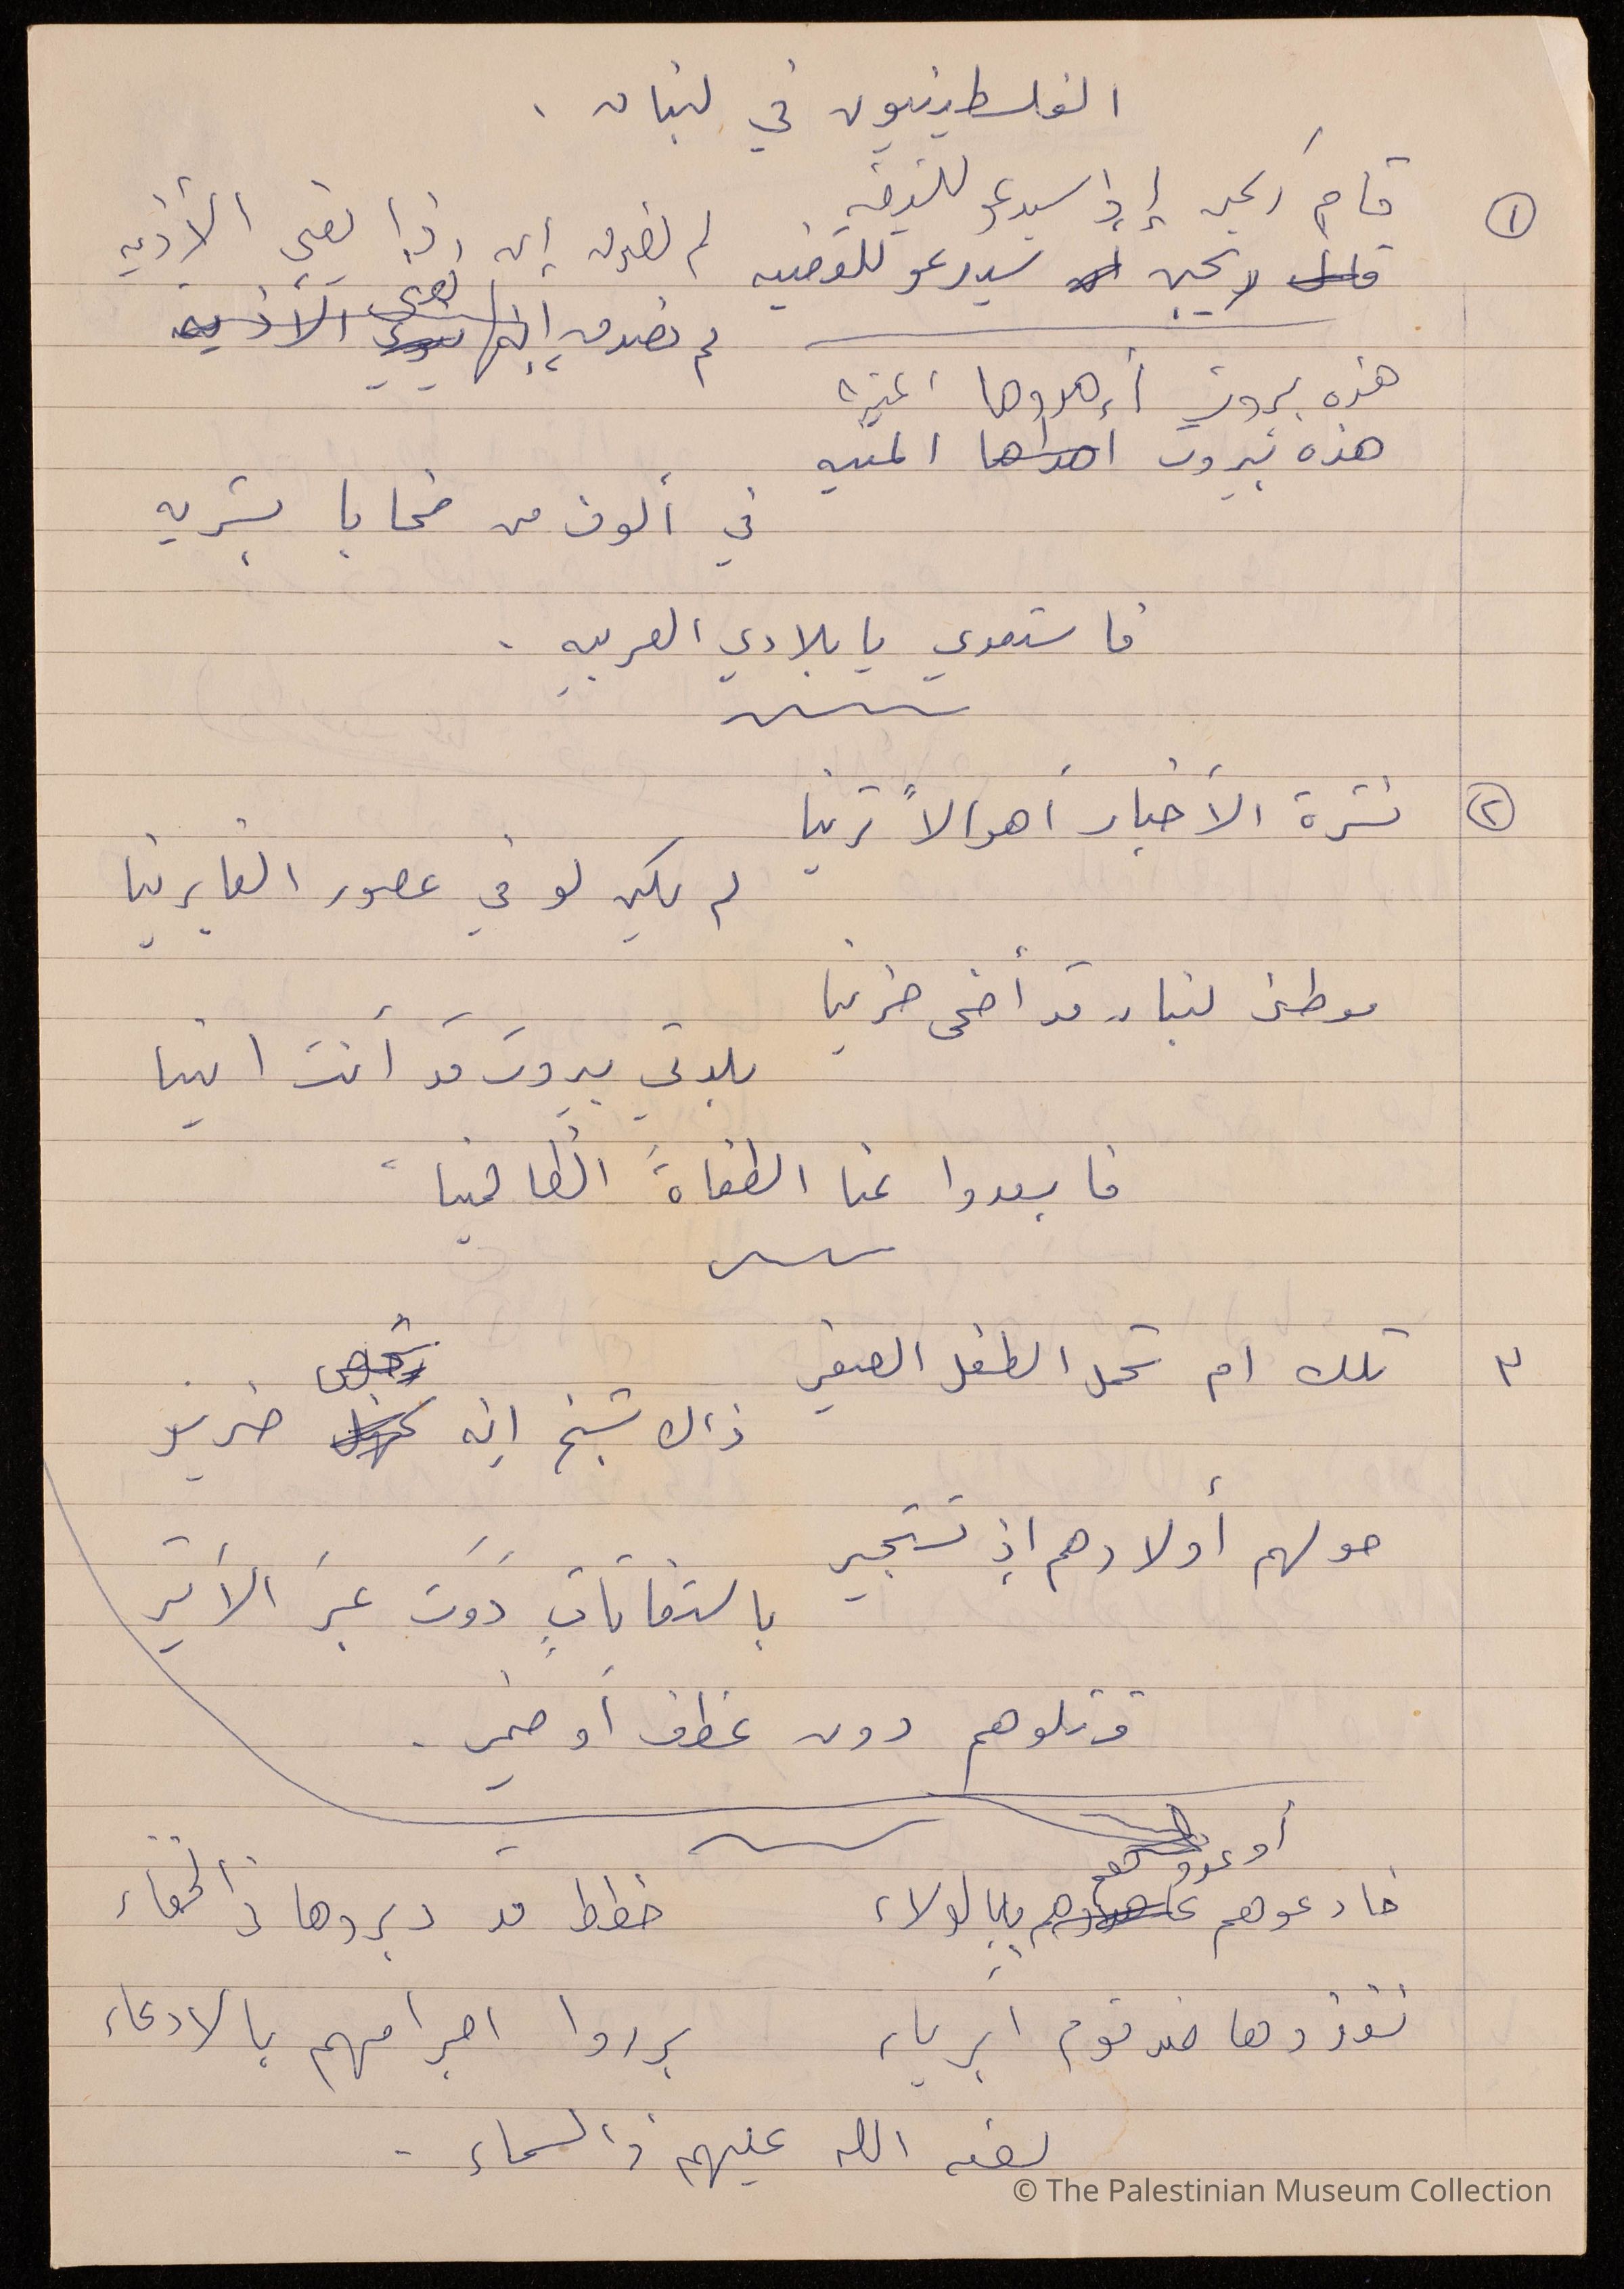 الفلسطينيون في لبنان .
١
قام ريجن إذ سيدعو للتدقيه
لم نصدق إن هذا يعني الأذيه
قال ريجن سيدعو للقضيه
لم نصدق إنها تعني الأذية
هذه بيروت أهدوها المنية
هذه بيروت أهداها المنيه
في ألوف من ضحايا بشريه
فاستعدي يا بلادي العربيه .
٢
نشرة الأخبار أهوالاً ترينا
لم يكن لو في عصور الغابرينا
موطني لبنان قد أضحى حزينا
بلدتي بيروت قد أنت انينا
فابعدوا عنا الطغاةَ الظالمينا
٣
تلك ام تحمل الطفل الصغير
شخص
ذاك شيخ إنه ضرير
حولهم أولادهم إذ تستجير
باستغاثاتٍ دَوَت عبرَ الأثير
قتلوهم دون عطف أو ضمير .
أوعدوهم
خادعوهم عاهدوهم بالولاء
خطط قد دبروها في الخفاء
نفذوها ضد قوم ابرياء
برروا اجرامهم بالادعاء
لعنه الله عليهم في السماء .
© The Palestinian Museum Collection